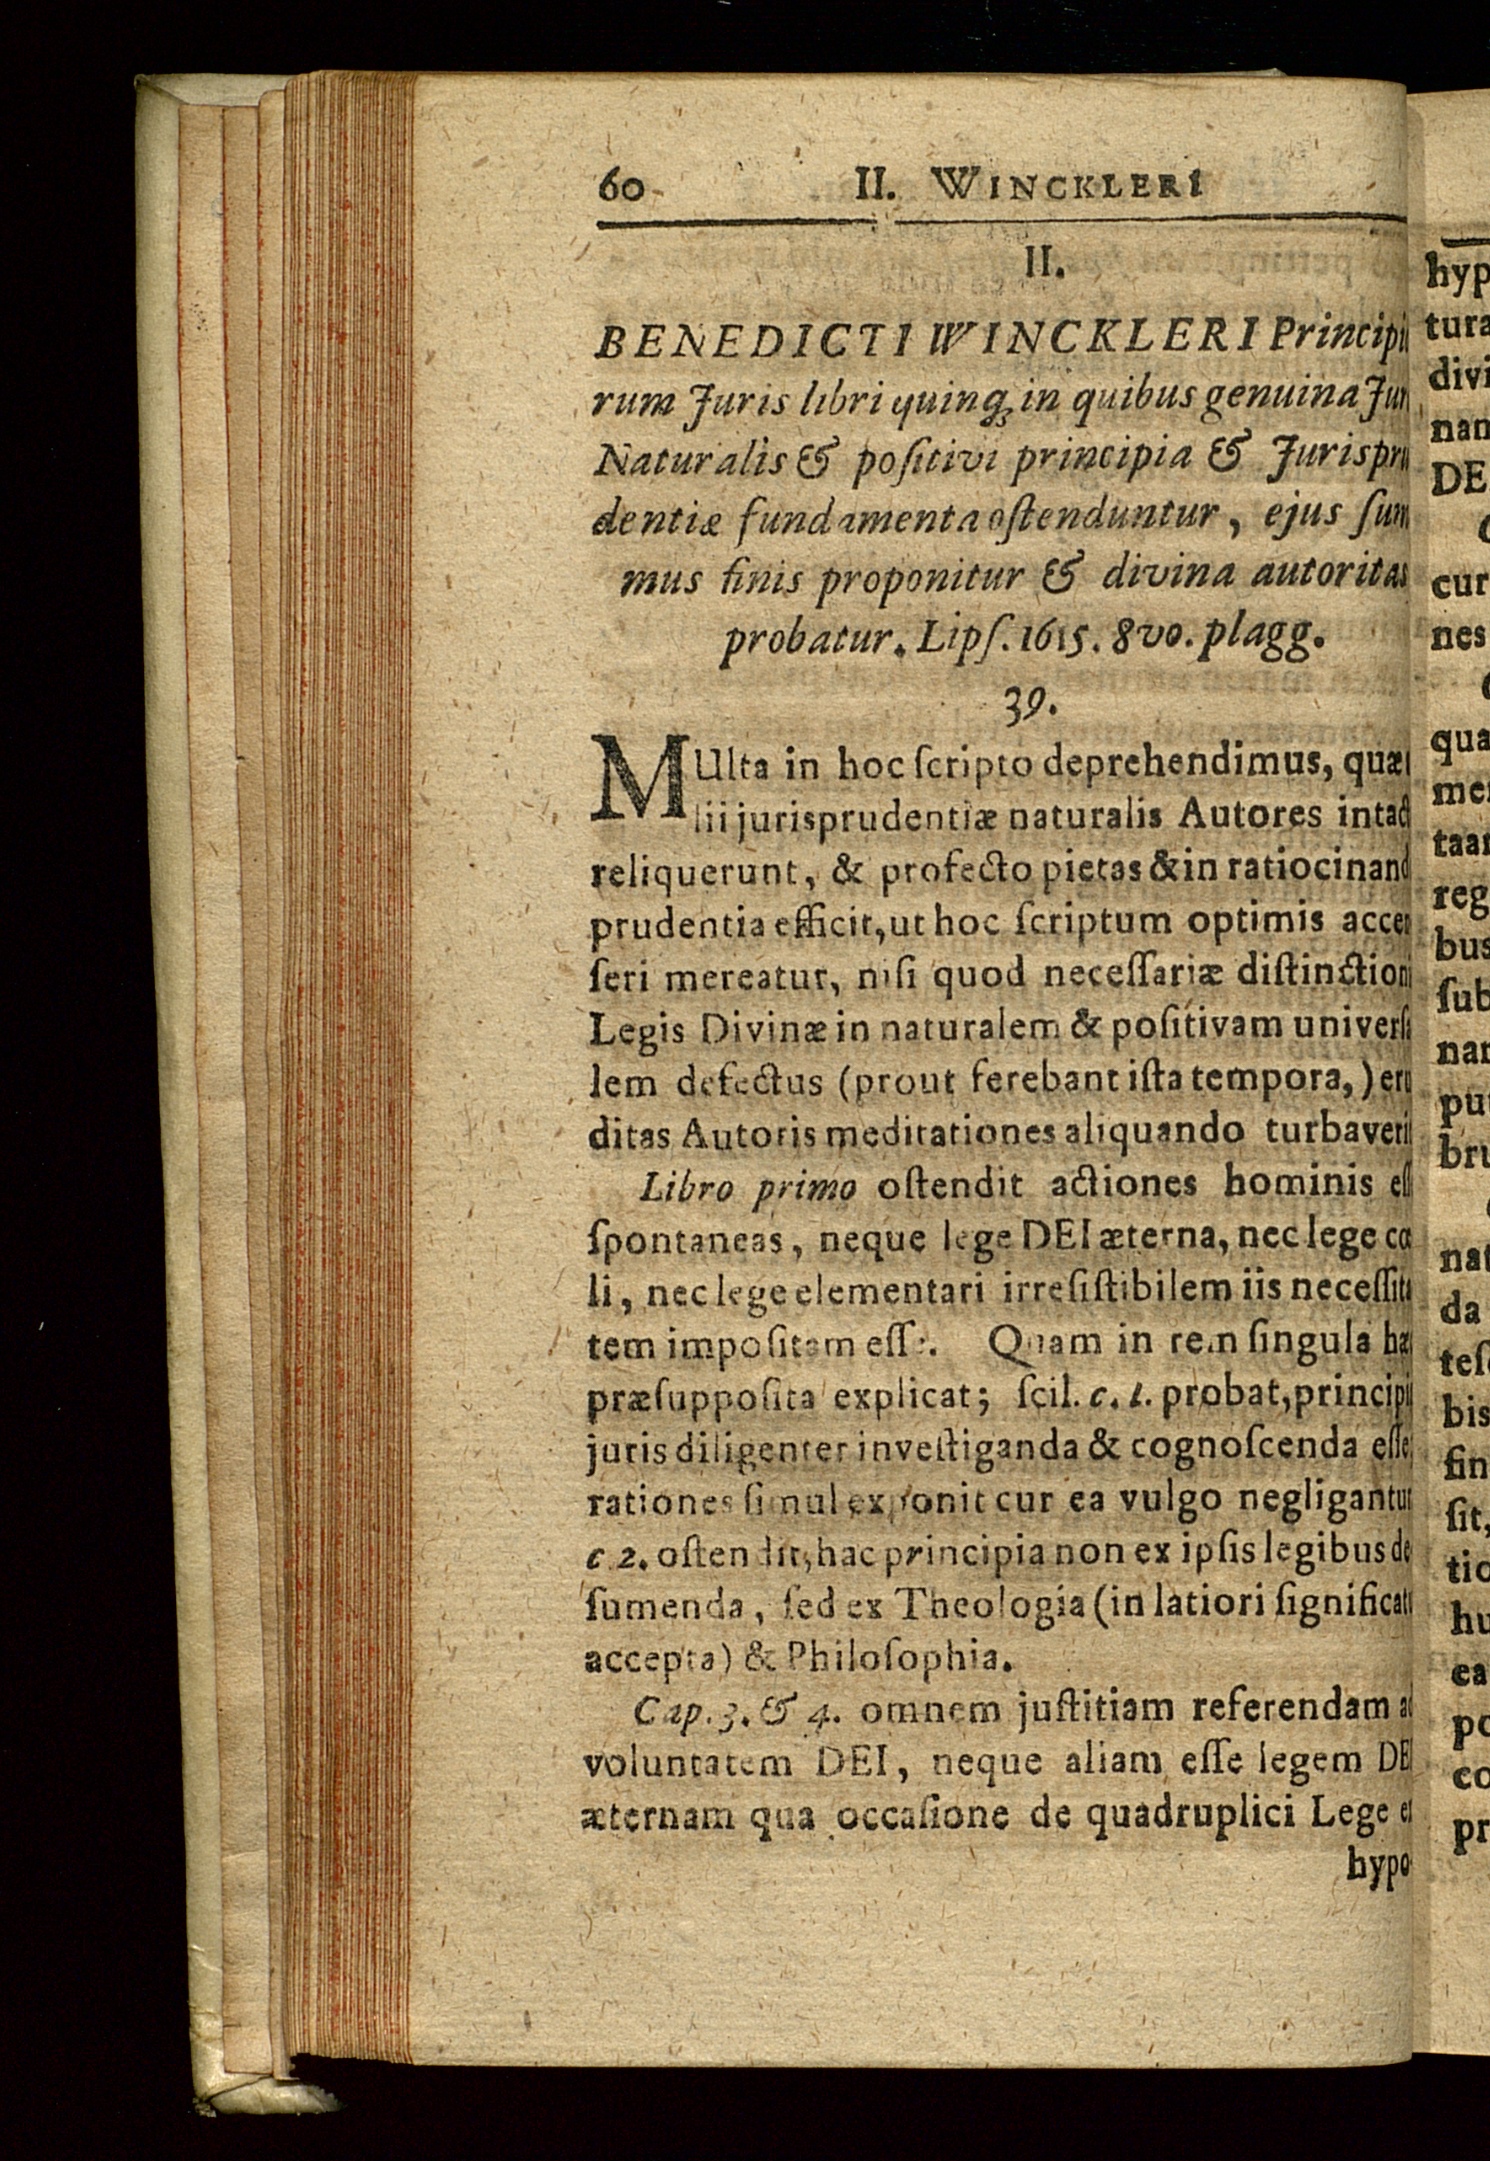 60 II. WINCKLERI
II.
BENEDICTI WINCKLERI Principi
rum Juris libri quinq; in quibus genuina Jur
Naturalis & poſitivi principia & Jurispru
dentiæ fundamenta oſtenduntur, ejus ſum
mus finis proponitur & divina autoritas
probatur. Lipſ. 1615. 8vo. plagg.
39.
MUlta in hoc ſcripto deprehendimus, quæ
lii jurisprudentiæ naturalis Autores intact
reliquerunt, & profecto pietas & in ratiocinand
prudentia efficit, ut hoc ſcriptum optimis accen
ſeri mereatur, niſi quod neceſſariæ diſtinctioni
Legis Divinæ in naturalem & poſitivam univerſa
lem defectus (prout ferebant iſta tempora,) eru
ditas Autoris meditationes aliquando turbaveri
Libro primo oſtendit actiones hominis eſſ
ſpontaneas, neque lege DEI æterna, nec lege cœ
li, nec lege elementari irreſiſtibilem iis neceſſita
tem impoſitam eſſe. Quam in rem ſingula hæ
præſuppoſita explicat; ſcil. c. 1. probat, principi
juris diligenter inveſtiganda & cognoſcenda eſſe,
rationes ſimul exponit cur ea vulgo negligantur
c 2. oſtendit, hac principia non ex ipſis legibus de
ſumenda, ſed ex Theologia (in latiori ſignificatu
accepta) & Philoſophia.
Cap. 3. & 4. omnem juſtitiam referendam ad
voluntatem DEI, neque aliam eſſe legem DEI
æternam qua occaſione de quadruplici Lege e
hypo
hyp
tura
divi
nam
DE
cur
nes
qua
mer
taar
reg
bus
ſub
nar
put
bru
nat
da
teſ
bis
fin
ſit,
tio
hu
ea
po
co
pr